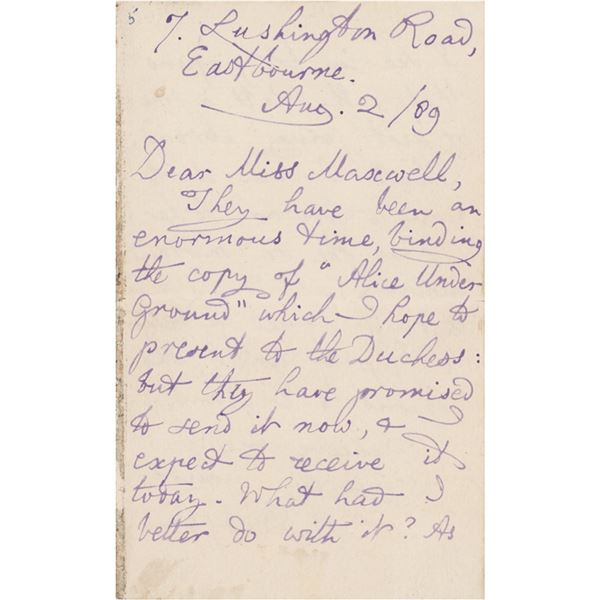 5
7. Lushington Road,
Eastbourne.
Aug. 2/89
Dear Miss Maxwell,
They have been an
enormous time, binding
the copy of "Alice Under
Ground" which I hope to
present to the Duchess:
but they have promised
to send it now, & I
expect to receive it
today. What had I
better do with it? As